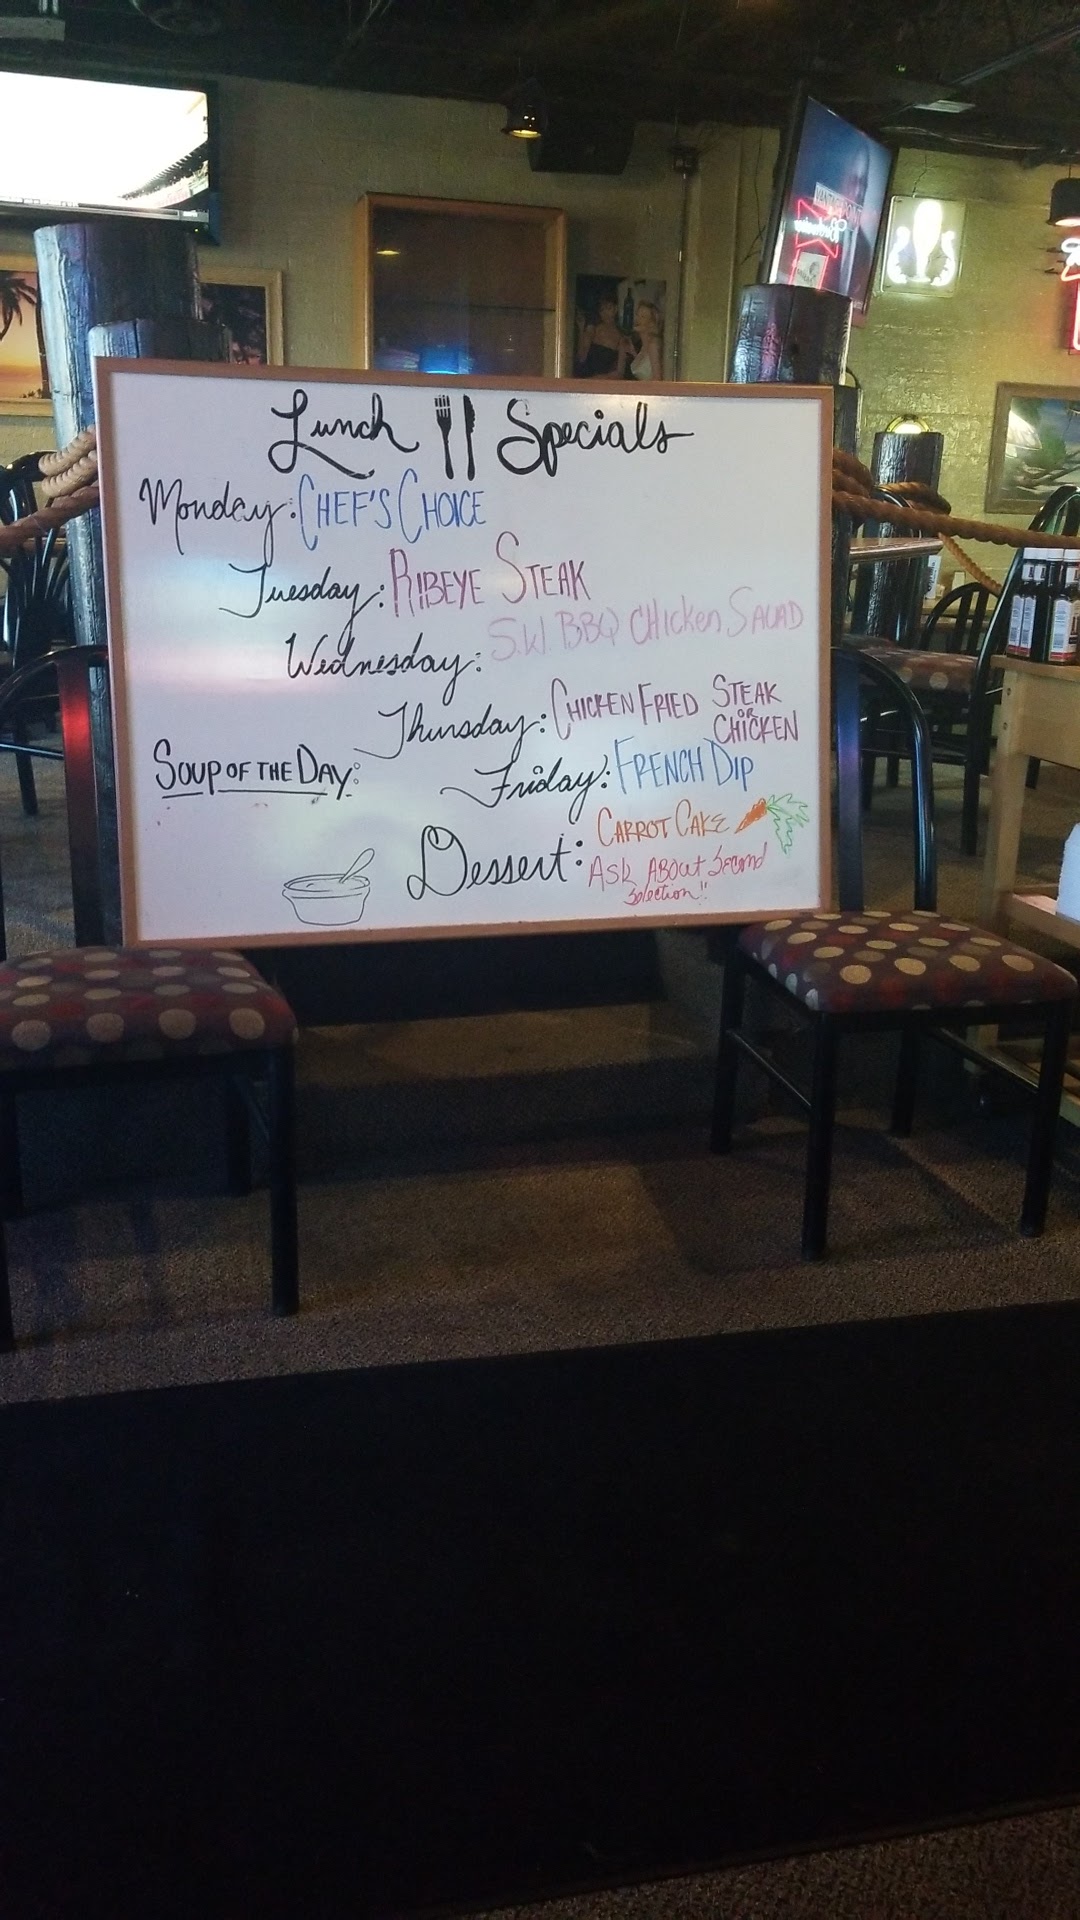 Lunch Specials
Monday: CHEF'S CHOICE
Tuesday: RIBEYE STEAK
Wednesday: S.W. BBQ CHICKEN SALAD
Thursday: CHICKEN FRIED STEAK
OR
CHICKEN
Friday: FRENCH DIP
SOUP OF THE DAY:
Dessert: CARROT CAKE
ASK ABOUT Second
Selection!!